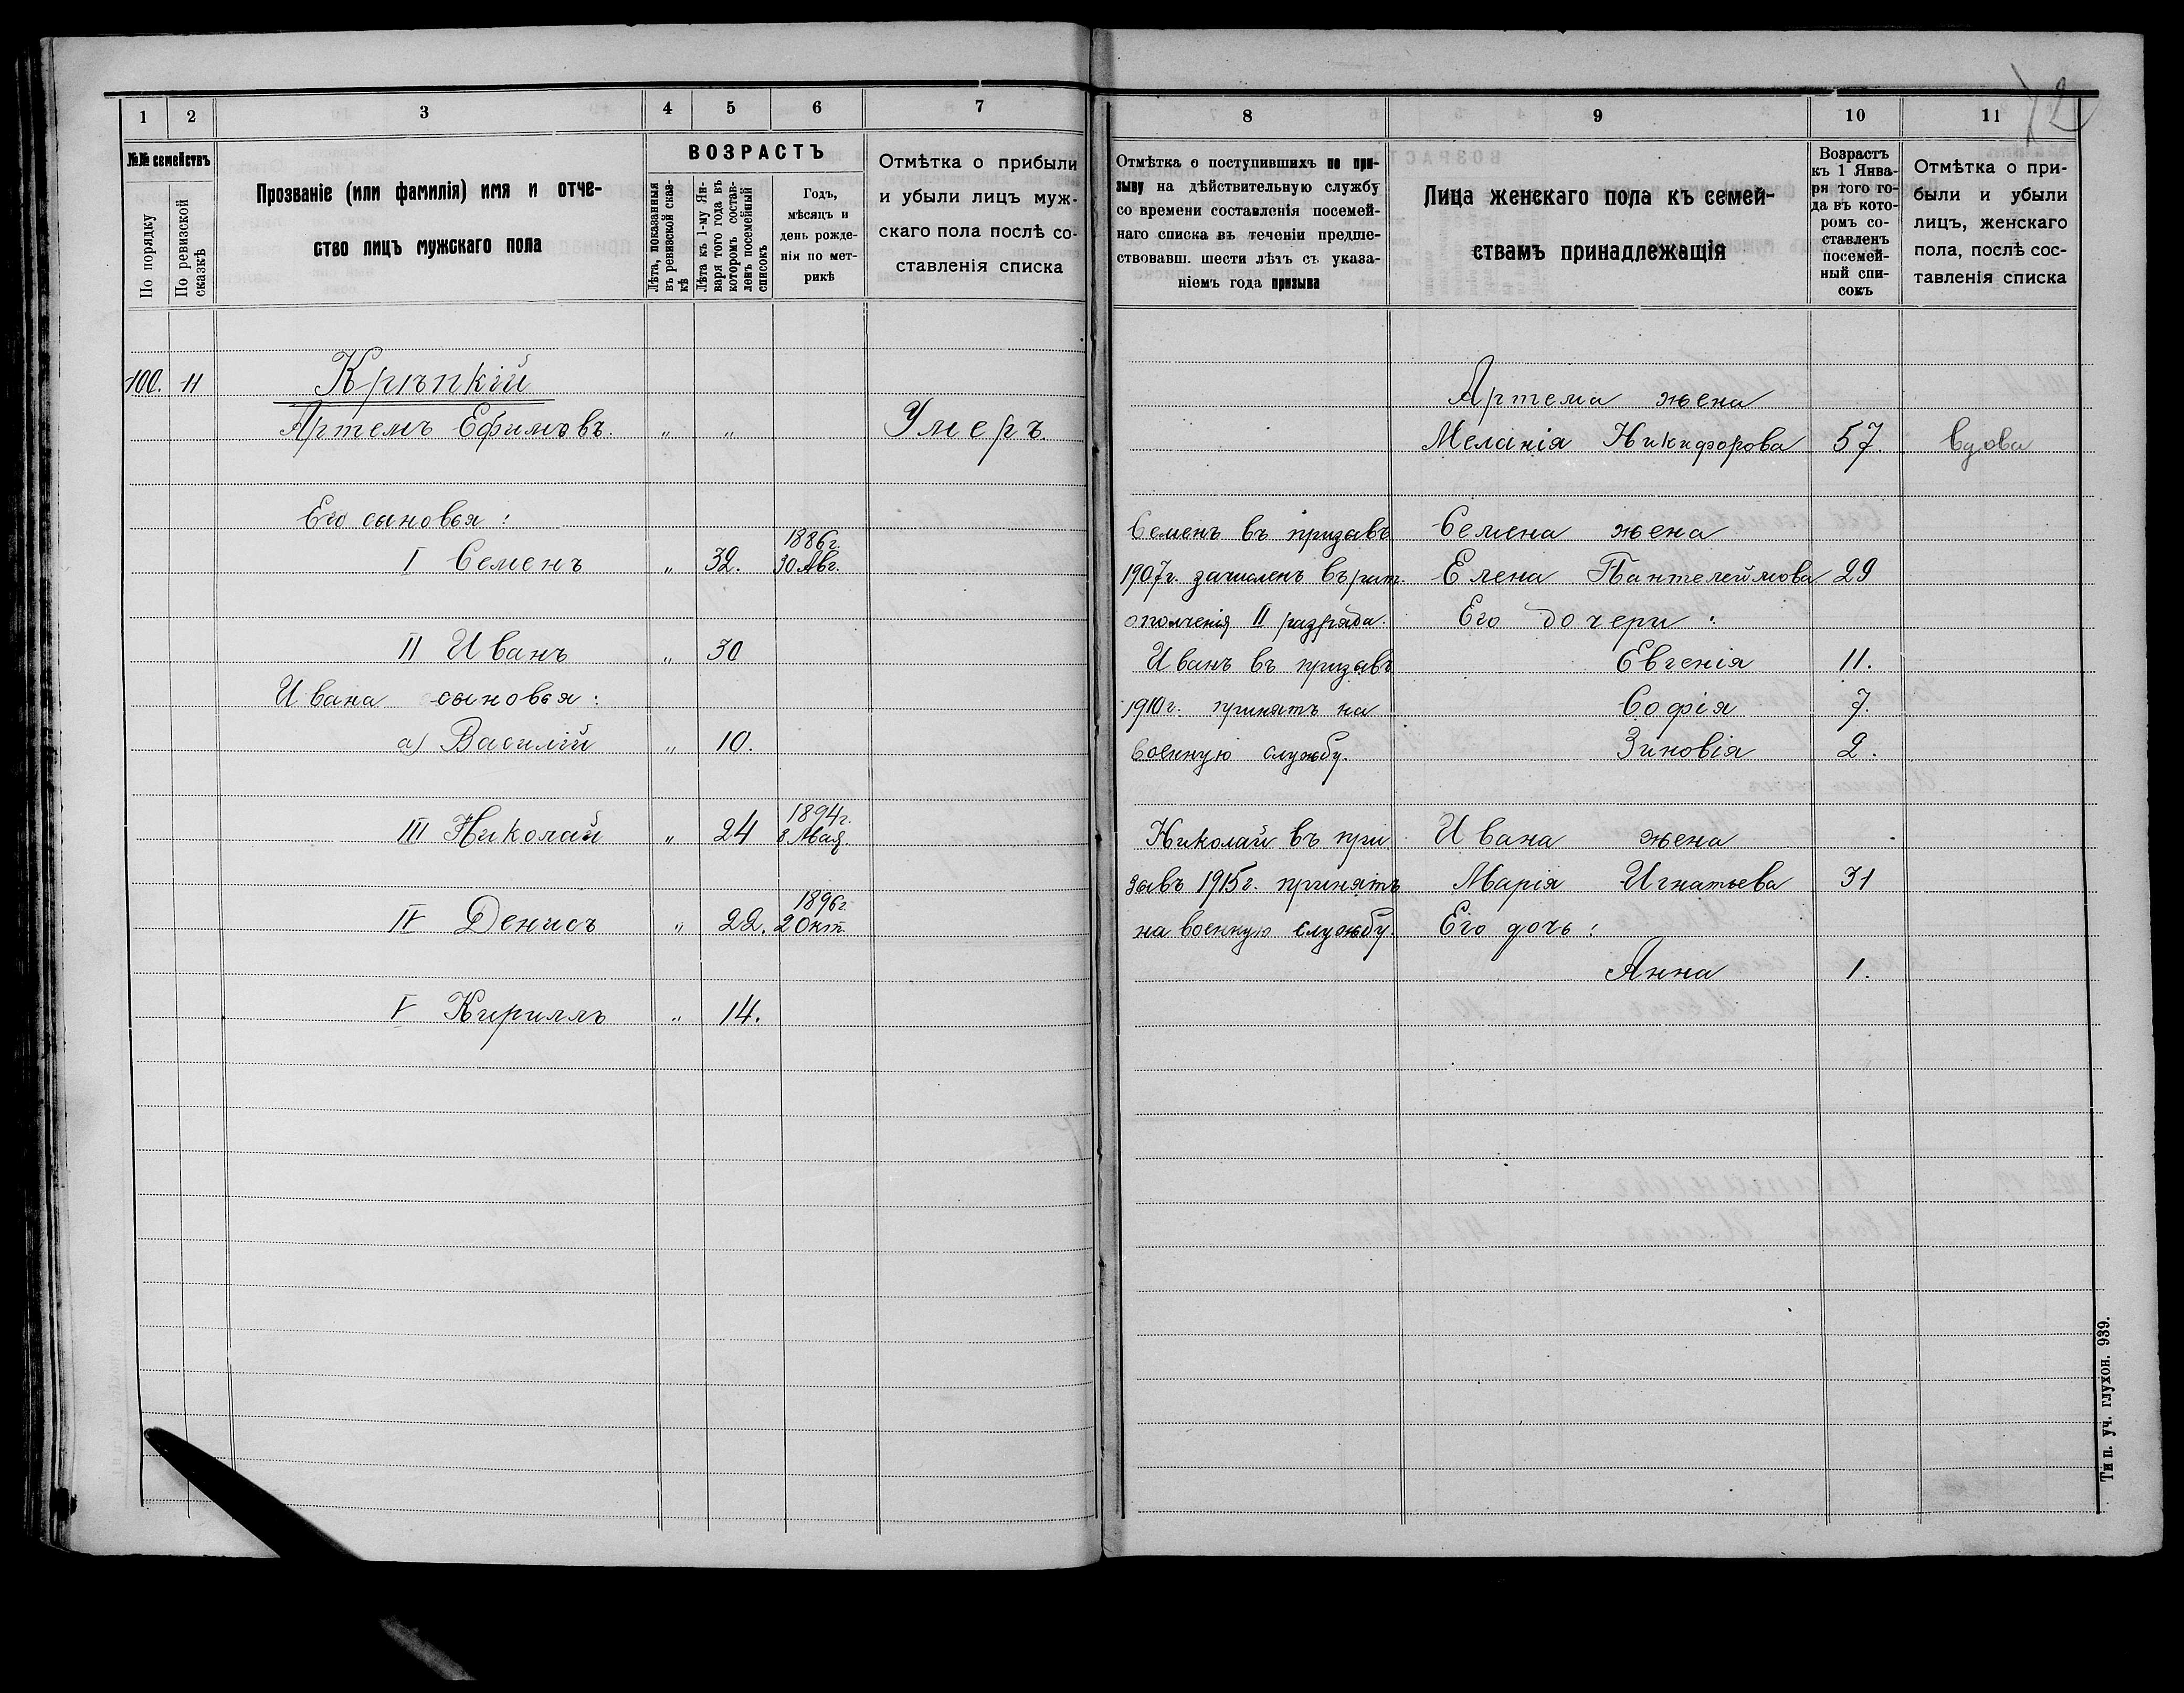 1 2 3 4 5 6 7
№№ семействъ
По порядку
По ревизской сказкѣ
Прозваніе (или фамилія) имя и отче-
ство лицъ мужскаго пола
ВОЗРАСТЪ
Лѣта, показанныя
въ ревизской сказ-
кѣ
Лѣта къ 1-му Ян-
варя того года въ
которомъ состав-
ленъ посемейный
списокъ
Годъ,
мѣсяцъ и
день рожде-
нія по мет-
рикѣ
Отмѣтка о прибыли
и убыли лицъ муж-
скаго пола послѣ со-
ставленія списка
100. 11 Крѣпкій
Артемъ Ефимовъ. " " Умеръ.
Его сыновья:
1886г.
I Семенъ " 32. 30 Авг.
II Иванъ " 30
Ивана сыновья:
а) Василій " 10.
1894г.
III Николай " 24 8 Мая.
1896г.
IV Денисъ " 22. 2 Окт.
V Кириллъ " 14.
72
8 9 10 11
Отмѣтка о поступившихъ по при-
зыву на дѣйствительную службу
со времени составленія посемей-
наго списка въ теченіи предше-
ствовавш. шести лѣтъ съ указа-
ніемъ года призыва
Лица женскаго пола къ семей-
ствамъ принадлежащія
Возрастъ
къ 1 Янва-
ря того го-
да въ кото-
ромъ со-
ставленъ
посемей-
ный спи-
сокъ
Отмѣтка о при-
были и убыли
лицъ, женскаго
пола, послѣ сос-
тавленія списка
Артема жена
Меланія Никифорова 57. вдова
Семенъ въ призывъ Семена жена
1907г. зачисленъ въ рат. Елена Пантелеймова 29
ополченія II разряда. Его дочери:
Иванъ въ призывъ Евгенія 11.
1910г. принятъ на Софія 7.
военную службу. Зиновія 2.
Николай въ при Ивана жена
зывъ 1915г. принятъ Марія Игнатьева 31
на военную службу. Его дочь:
Анна 1.
Тип. уч. глухон. 939.